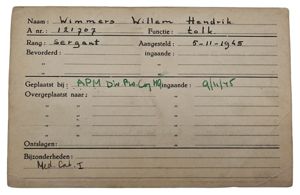 Naam: Wimmers Willem Hendrik
A nr.: 121707 Functie: tolk.
Rang: Sergeant Aangesteld: 5-11-1945
Bevorderd: ingaande:
Geplaatst bij: APM Div Pro Coy HQ ingaande: 9/11/45
Overgeplaatst naar:
Ontslagen:
Bijzonderheden:
Med. Cat. I